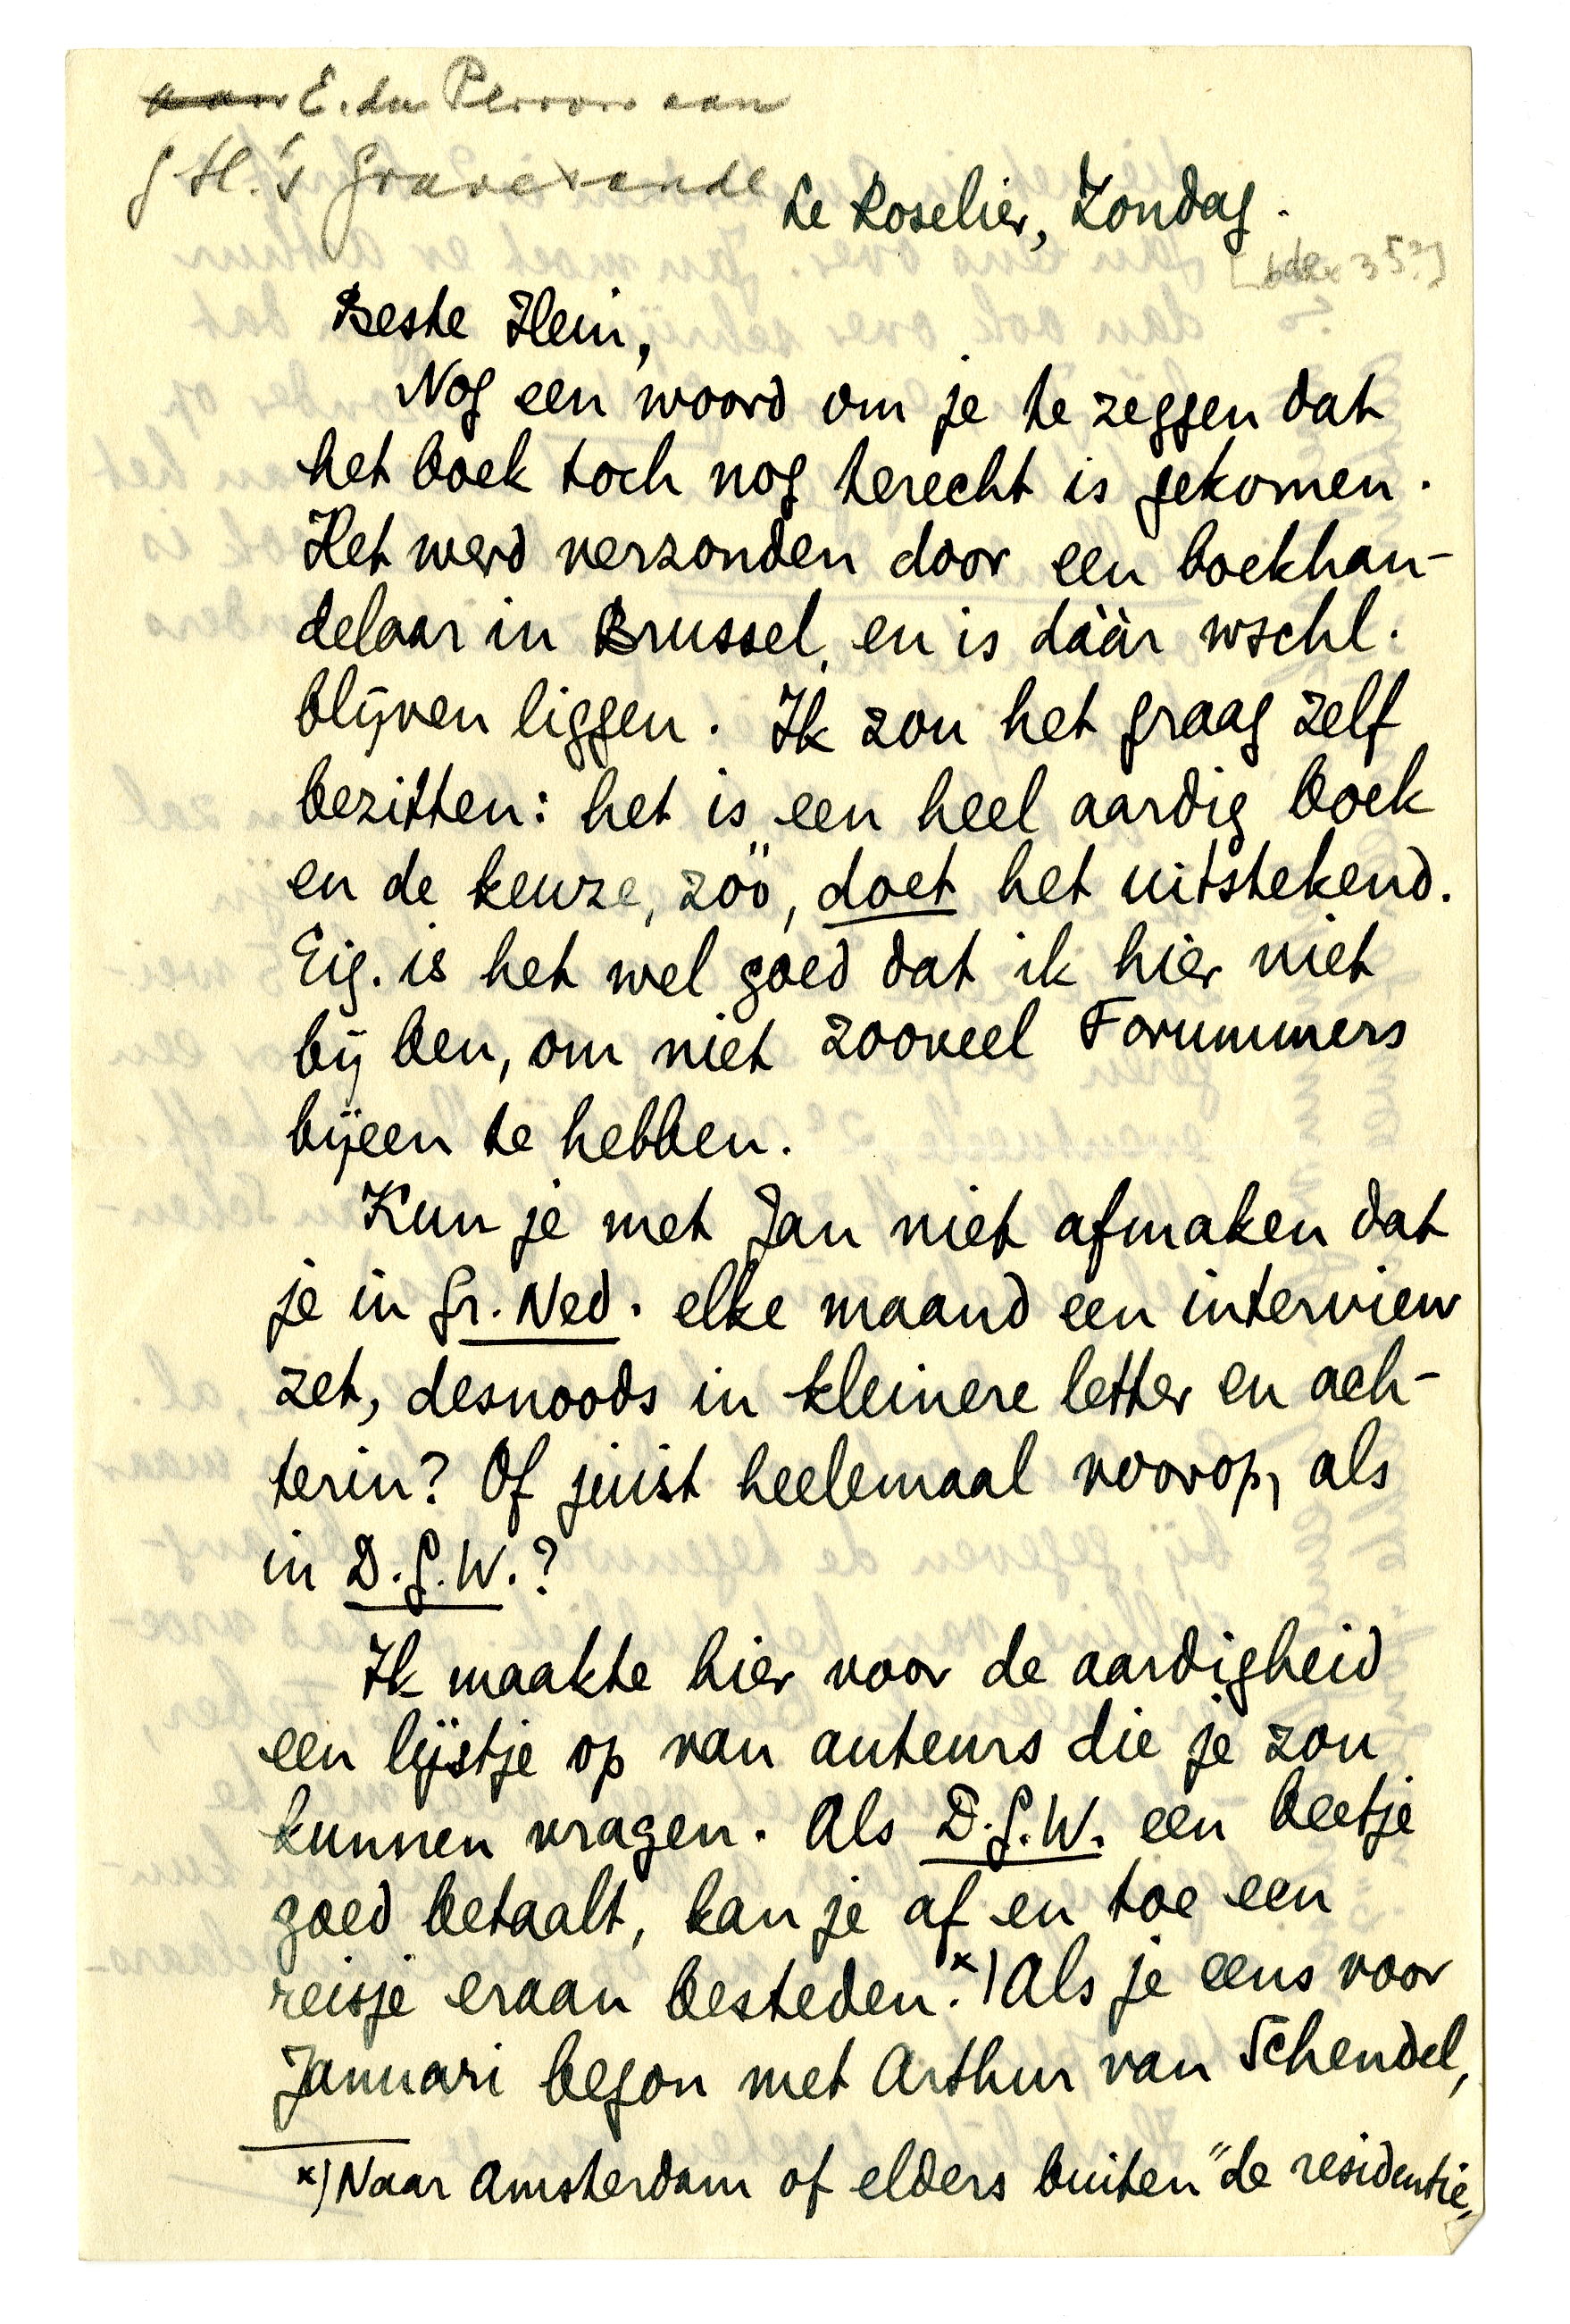 E. du Perron aan
G.H. 's Gravesande
Le Roselier, Zondag.
Beste Hein,
Nog een woord om je te zeggen dat
het boek toch nog terecht is gekomen.
Het werd verzonden door een boekhan-
delaar in Brussel, en is dààr wschl.
blijven liggen. Ik zou het graag zelf
bezitten: het is een heel aardig boek
en de keuze, zóó, doet het uitstekend.
Eig. is het wel goed dat ik hier niet
bij ben, om niet zooveel Forummers
bijeen te hebben.
Kun je met Jan niet afmaken dat
je in Gr. Ned. elke maand een interview
zet, desnoods in kleinere letter en ach-
terin? Of juist heelemaal voorop, als
in D.G.W.?
Ik maakte hier voor de aardigheid
een lijstje op van auteurs die je zou
kunnen vragen. Als D.G.W. een beetje
goed betaalt, kan je af en toe een
reisje eraan besteden.*) Als je eens voor
Januari begon met Arthur van Schendel,
*) Naar Amsterdam of elders buiten "de residentie"